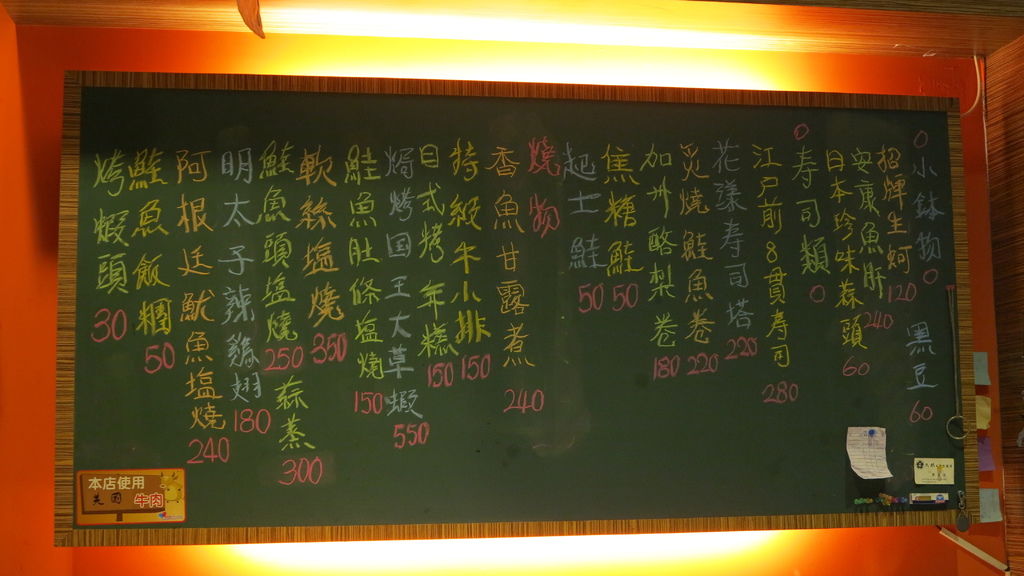 小鉢物
黑豆 60
招牌生蚵 120
安康魚肝 240
日本珍味蒜頭 60
壽司類
江戸前8貫壽司 280
花漾壽司塔 220
炙燒鮭魚卷 220
加州酪梨卷 180
焦糖鮭 50
起士鮭 50
燒物
香魚甘露煮 240
特級牛小排 150
日式烤年糕 150
焗烤国王大草蝦 550
鮭魚肚條塩燒 150
軟絲塩燒 350
鮭魚頭塩燒 250 蒜蒸 300
明太子辣雞翅 180
阿根廷魷魚塩燒 240
鮭魚飯糰 50
烤蝦頭 30
本店使用
美國 牛肉